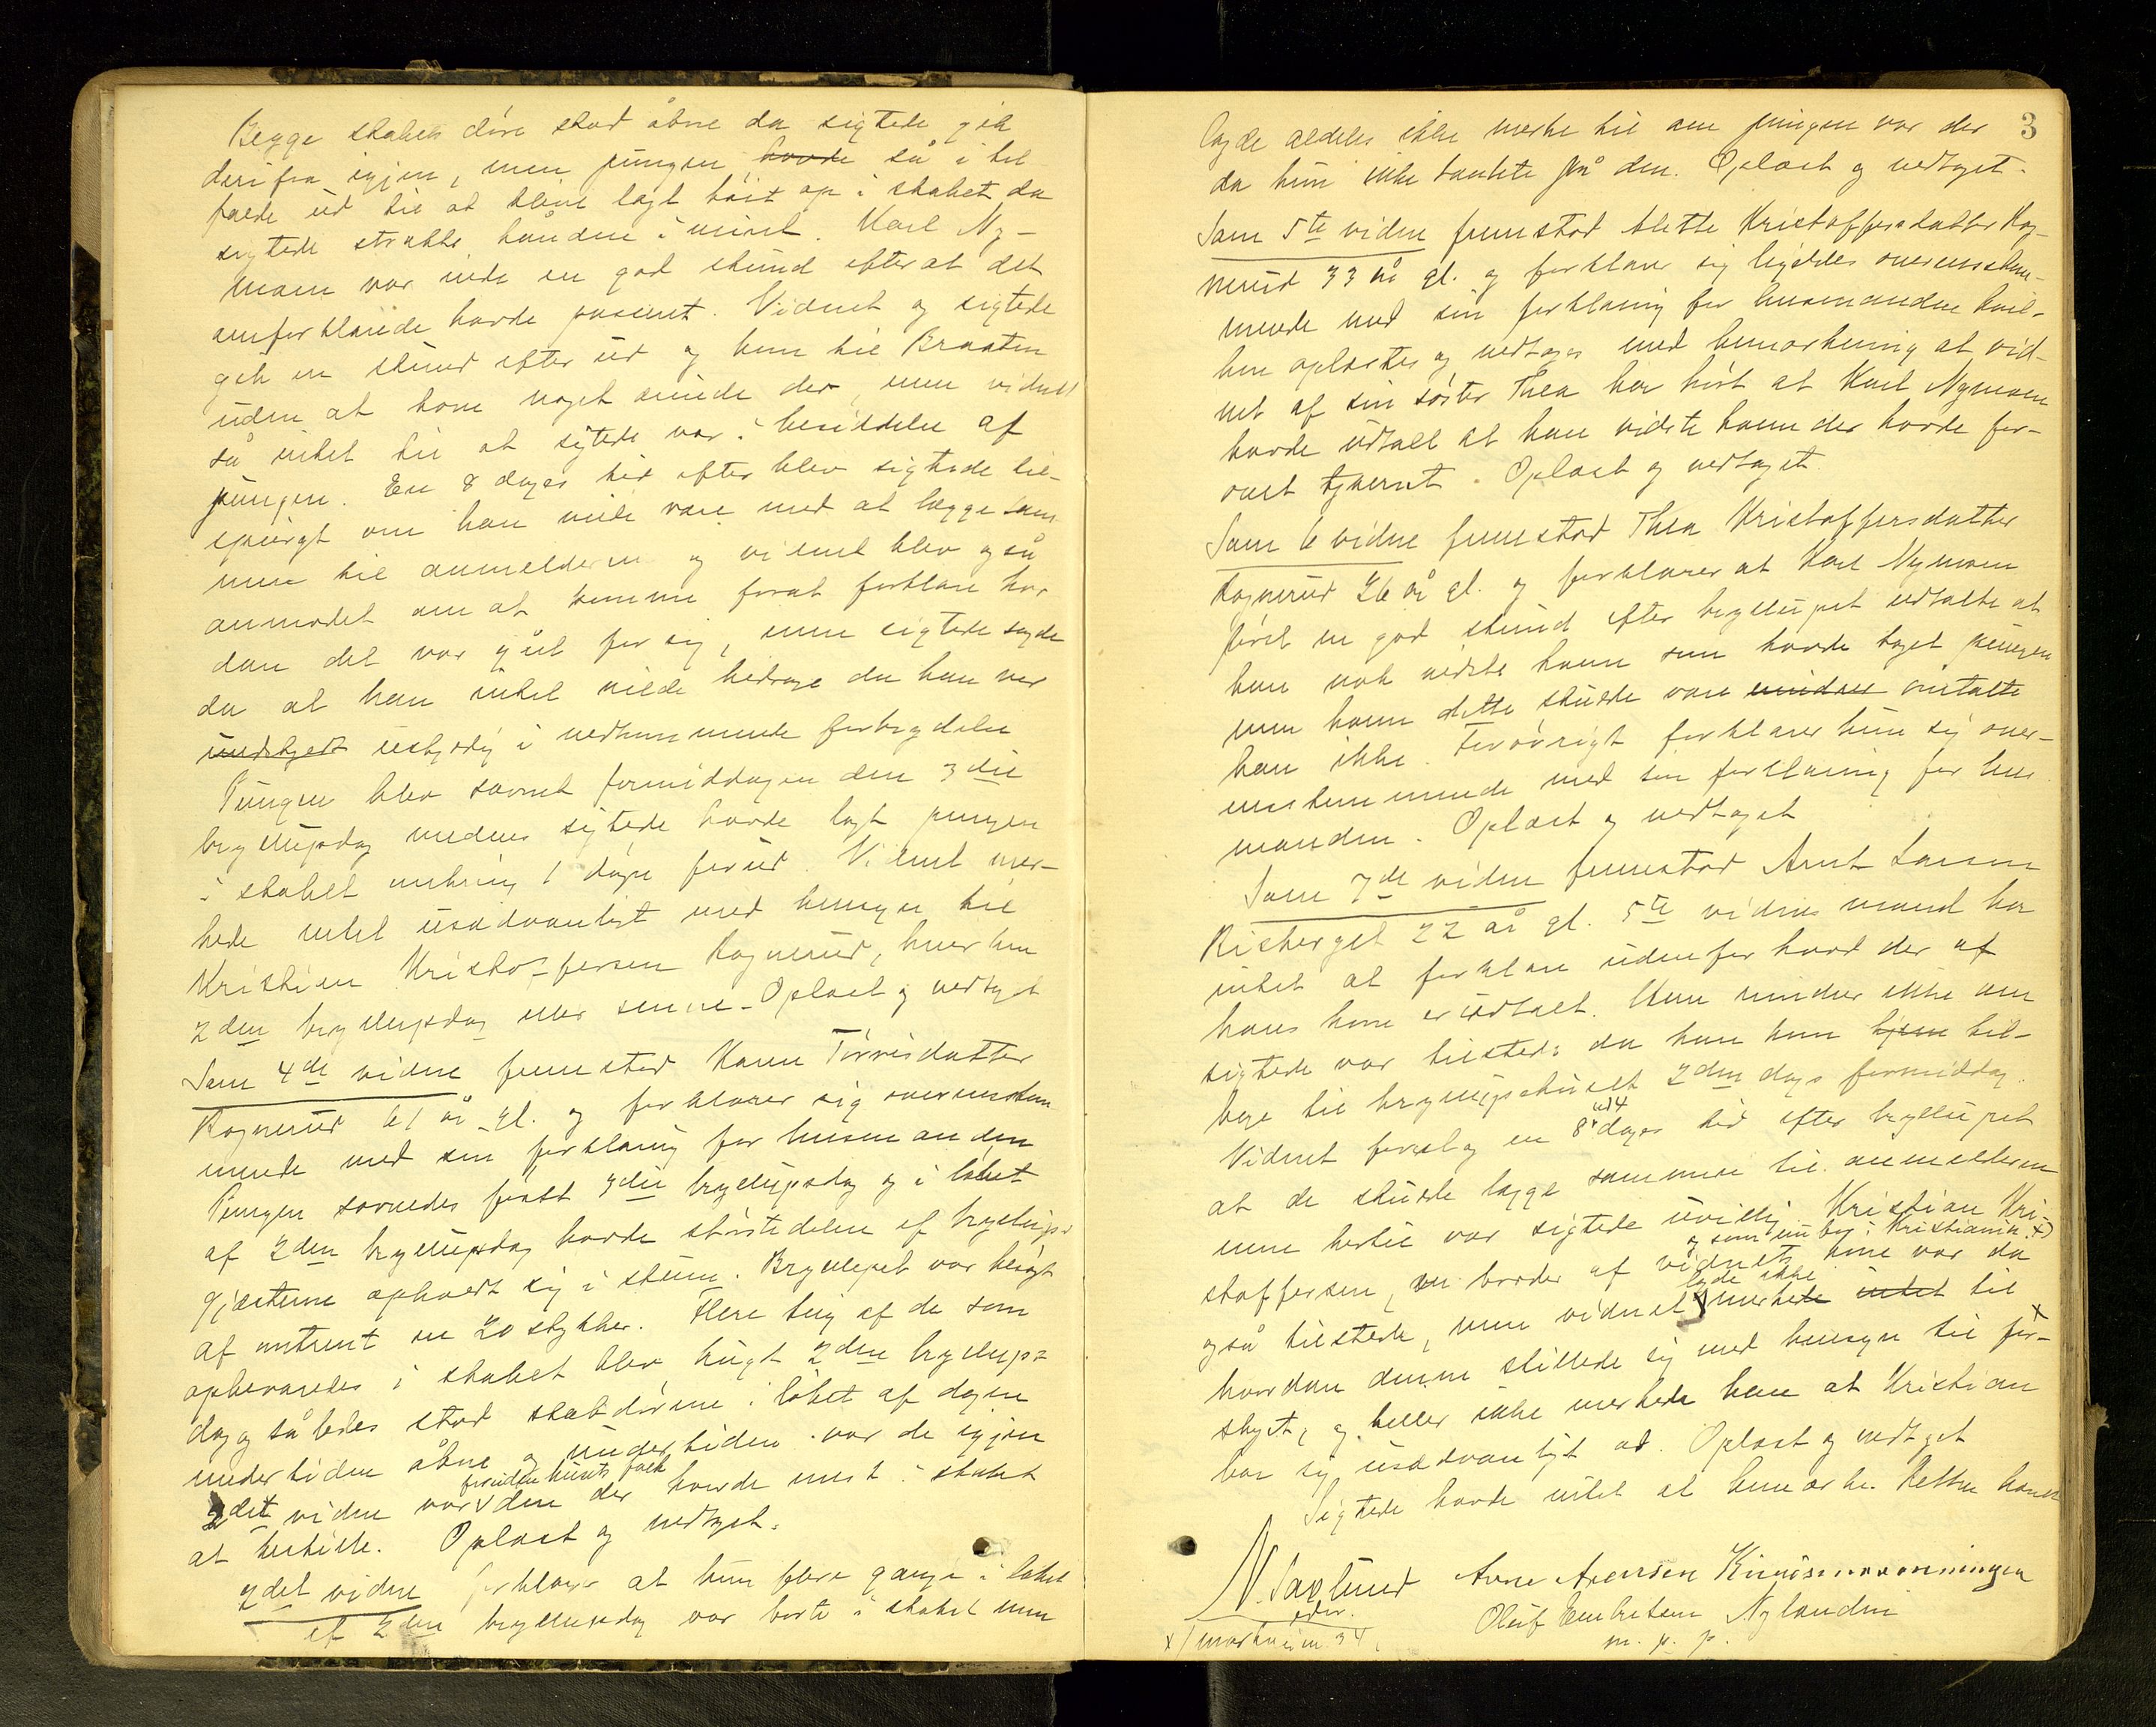 Begge skabets døre stod åbne da sigtede gik
derifra igjen, men pungen havde så i til
fælde ud til at blive lagt høit op i skabet da
sigtede strakte hånden i veiret. Karl Ny-
moen var inde en god stund efter at det
omforklarede havde passeret. Vidnet og sigtede
gik en stund efter ud og hen til Braaten
uden at have noget ærinde der, men vidnet
så intet til at sigtede var i besiddelse af
pungen. En 8 dages tid efter blev sigtede til-
spurgt om han vilde være med at lægge sam-
men til anmelderen og vidnet blev også
anmodet om at komme forat forklare hvor
dan det var gået for sig, men sigtede sagde
da at han intet vilde bidrage da han var
undskyldt uskyldig i vedkommende forbrydelse
Pungen blev savnet formiddagen den 3die
bryllupsdag medens sigtede havde lagt pungen
i skabet omkring 1 døgn forud. Vidnet mær-
kede intet usædvanligt med hensyn til
Kristian Kristoffersen Rognerud, hverken
2den bryllupsdag eller senere. Oplæst og vedtaget
Som 4de vidne fremstod Karen Torrisdatter
Rognerud 61 år gl. og forklarer sig overensstem
mende med sin forklaring for husmanden
Pungen savnedes først 3die bryllupsdag og i løbet
af 2den bryllupsdag havde størstedelen af bryllups-
gjæsterne opholdt sig i stuen. Bryllupet var besøgt
af omtrent en 20 stykker. Flere ting af de som
opbevaredes i skabet blev brugt 2den bryllups-
dag og således stod skabdørene i løbet af dagen
undertiden åbne og undertiden var de igjen
2det vidne var foruden husets folk den der havde mest i skabet
at bestille. Oplæst og vedtaget.
2det vidne forklarer at hun flere gange i løbet
af 2den bryllupsdag var borte i skabet men
3
lagde aldeles ikke mærke til om pungen var der
da hun ikke tænkte på den. Oplæst og vedtaget.
Som 5te vidne fremstod Alette Kristoffersdatter Rog-
nerud 33 år gl. og forklarer sig ligeledes overensstem-
mende med sin forklaring for husmanden hvil-
ken oplæstes og vedtages med bemærkning at vid-
net af sin søster Thea har hørt at Karl Nymoen
havde udtalt at han vidste hvem der havde for-
øvet tyveriet. Oplæst og vedtaget.
Som 6 vidne fremstod Thea Kristoffersdatter
Rognerud 26 år gl. og forklarer at Karl Nymoen
først en god stund efter bryllupet udtalte at
han nok vidste hvem som havde taget pungen
men hvem dette skulde være omtalte
han ikke. Forøvrigt forklarer hun sig over-
ensstemmende med sin forklaring for hus
manden. Oplæst og vedtaget
Som 7de vidne fremstod Arnt Larsen
Risberget 22 år gl. 5te vidnes mand har
intet at forklare udenfor hvad der af
hans kone er udtalt. Han minder ikke om
sigtede var tilstede da han kom hjem til-
bage til bryllupshuset 2den dags formiddag.
Vidnet foreslog en 8 dages tid efter bryllupet
at de skulde lægge sammen til anmelderen
men hertil var sigtede uvillig. Kristian Kri-
stoffersen, en broder af vidnets kone og som nu bor i Kristiania x) var da
også tilstede, men vidnet lagde ikke mærkede intet til
hvordan denne stillede sig med hensyn til for-
slaget, og heller ikke mærkede han at Kristian
bar sig usædvanligt ad. Oplæst og vedtaget
Sigtede havde intet at bemærke. Retten hævet
N. Saxlund Arne Arensen
Oluf Embretsen Nylandin
m. p. p.
x)